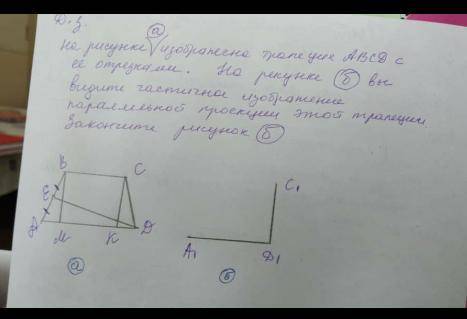 Д.з.
На рисунке (а) изображена трапеция ABCD с
её отрезками. На рисунке (б) вы
видите частичное изображение
параллельной проекции этой трапеции
Закончите рисунок (б)
B C
E
A M K D
(а)
C₁
A₁ D₁
(б)